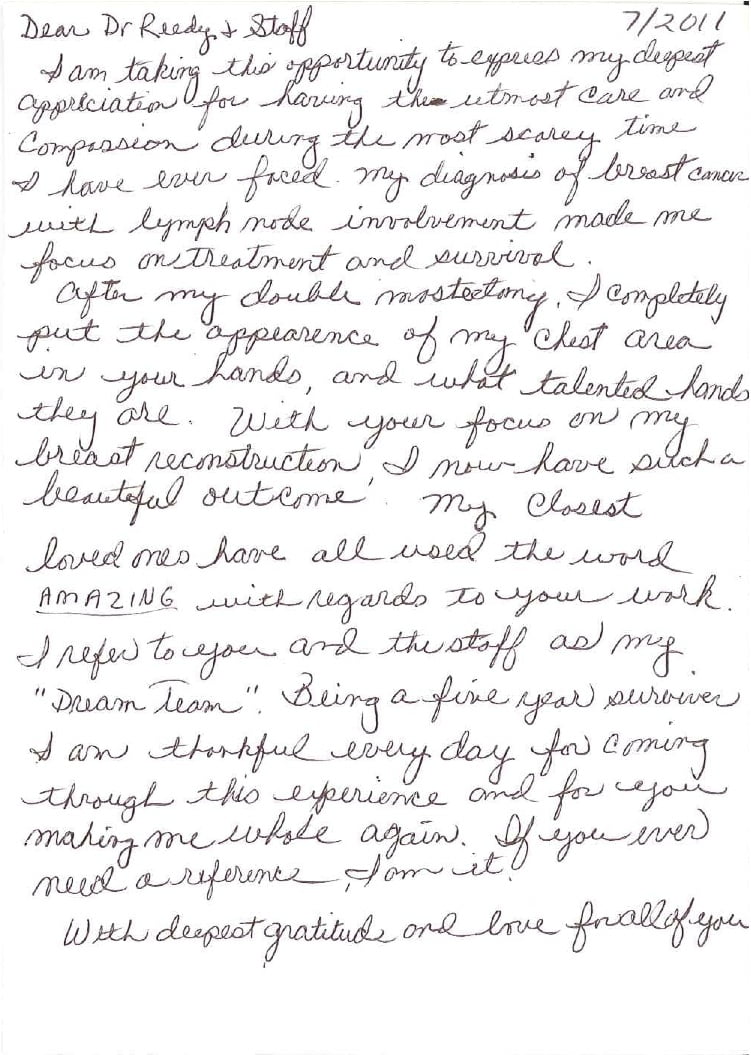 Dear Dr Reedy & Staff 7/2011
I am taking this opportunity to express my deepest
appriciation for having the utmost care and
Compassion during the most scarey time
I have ever faced. My diagnosis of breast cancer
with lymph node involvement made me
focus on treatment and survival.
After my double mastectomy, I completely
put the appearence of my chest area
in your hands, and what talented hands
they are. With your focus on my
breast reconstruction, I now have such a
beautiful outcome. My Closest
loved ones have all used the word
AMAZING with regards to your work.
I refer to you and the staff as my
"Dream Team". Being a five year surviver
I am thankful every day for coming
through this experience and for you
making me whole again. If you ever
need a reference, I am it!
With deepest gratitude and love for all of you